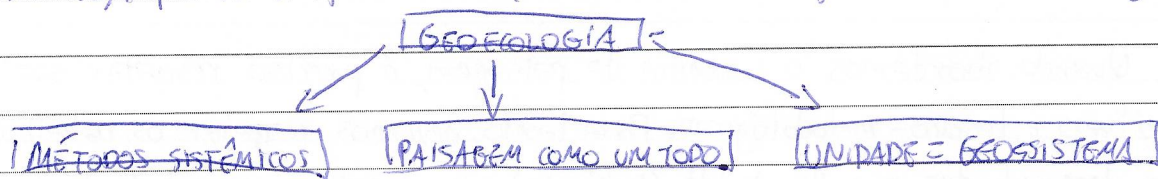 GEOECOLOGIA =
MÉTODOS SISTÊMICOS PAISAGEM COMO UM TODO UNIDADE = GEOSSISTEMA